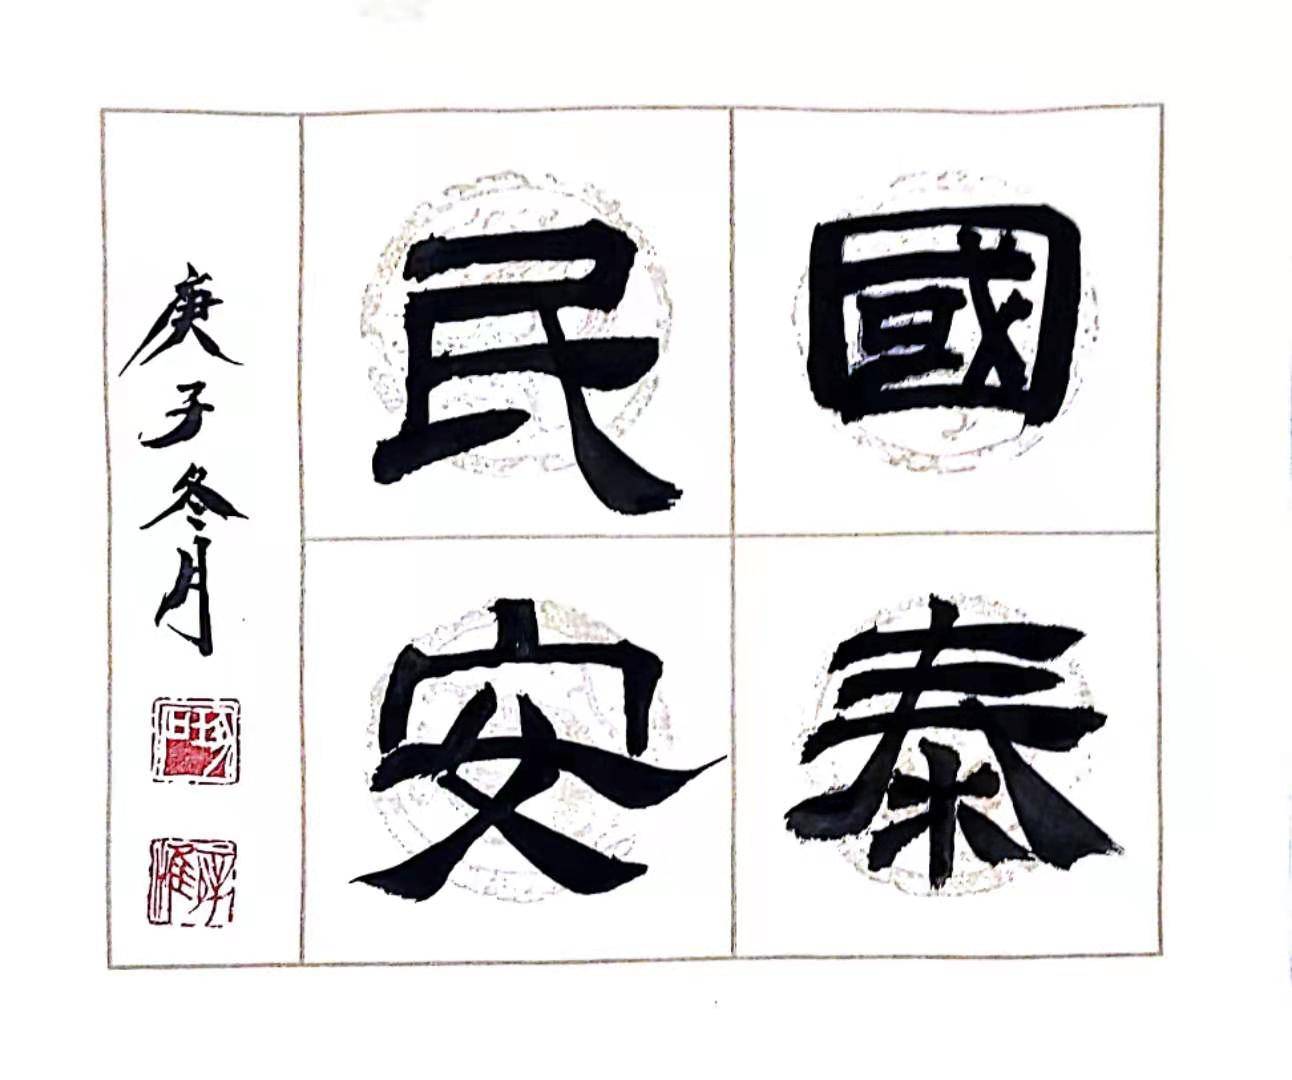 國泰
民安
庚子冬月